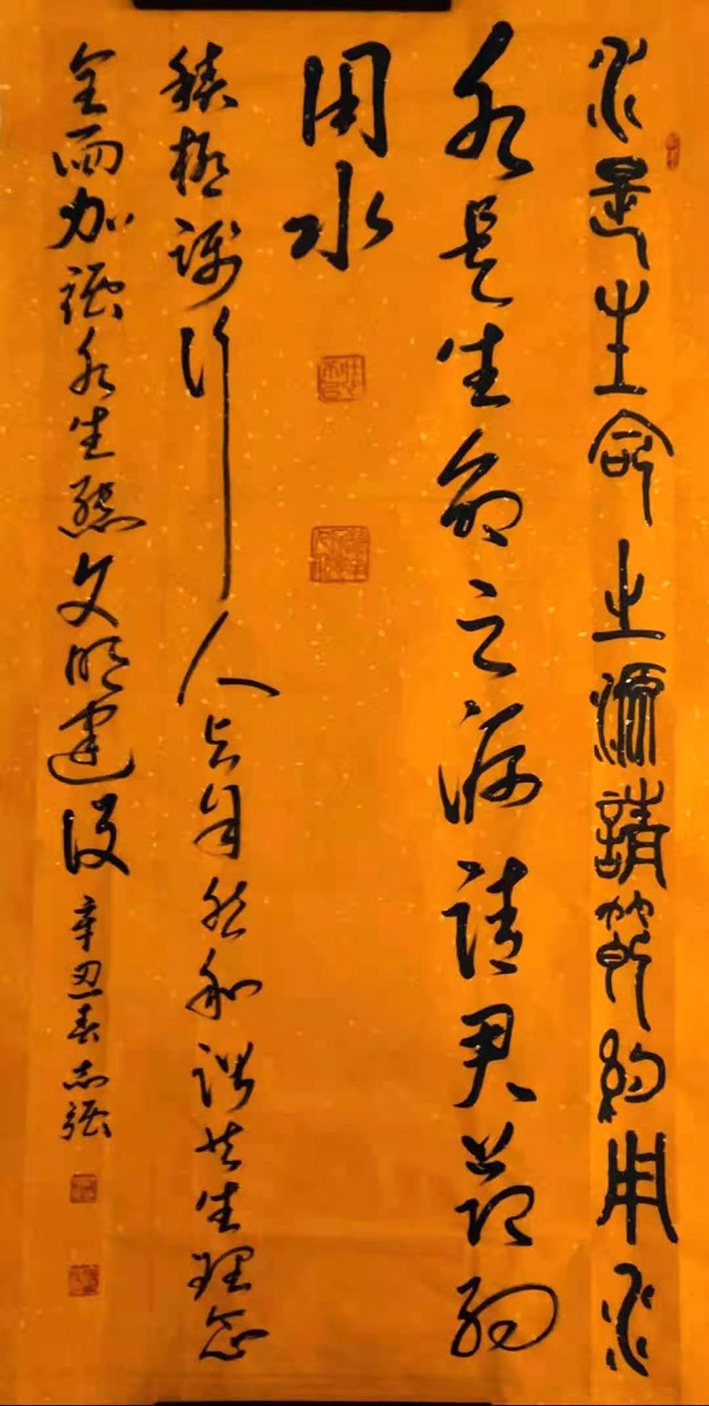 水是生命之源請節約用水
水是生命之源请君节约
用水
积极践行人与自然和谐共生理念
全面加强水生态文明建设
辛丑春志强